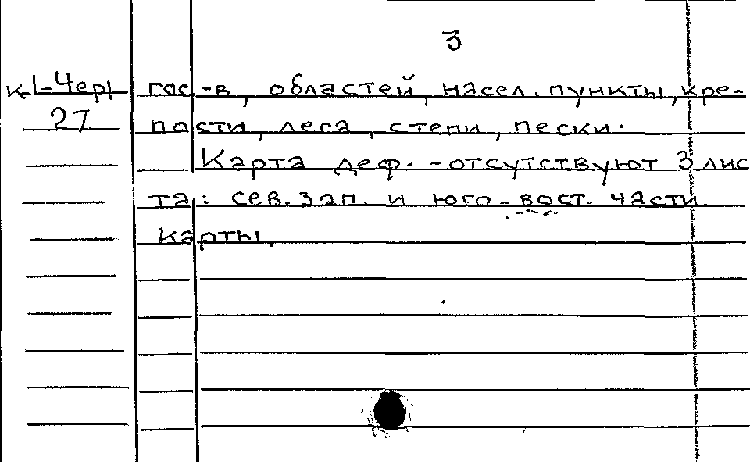 3
К 1-Черн гос-в, областей, насел. пункты, кре-
27 пости, леса, степи, пески.
Карта деф. - отсутствуют 3 лис
та: сев. зап. и юго-вост. части
карты.